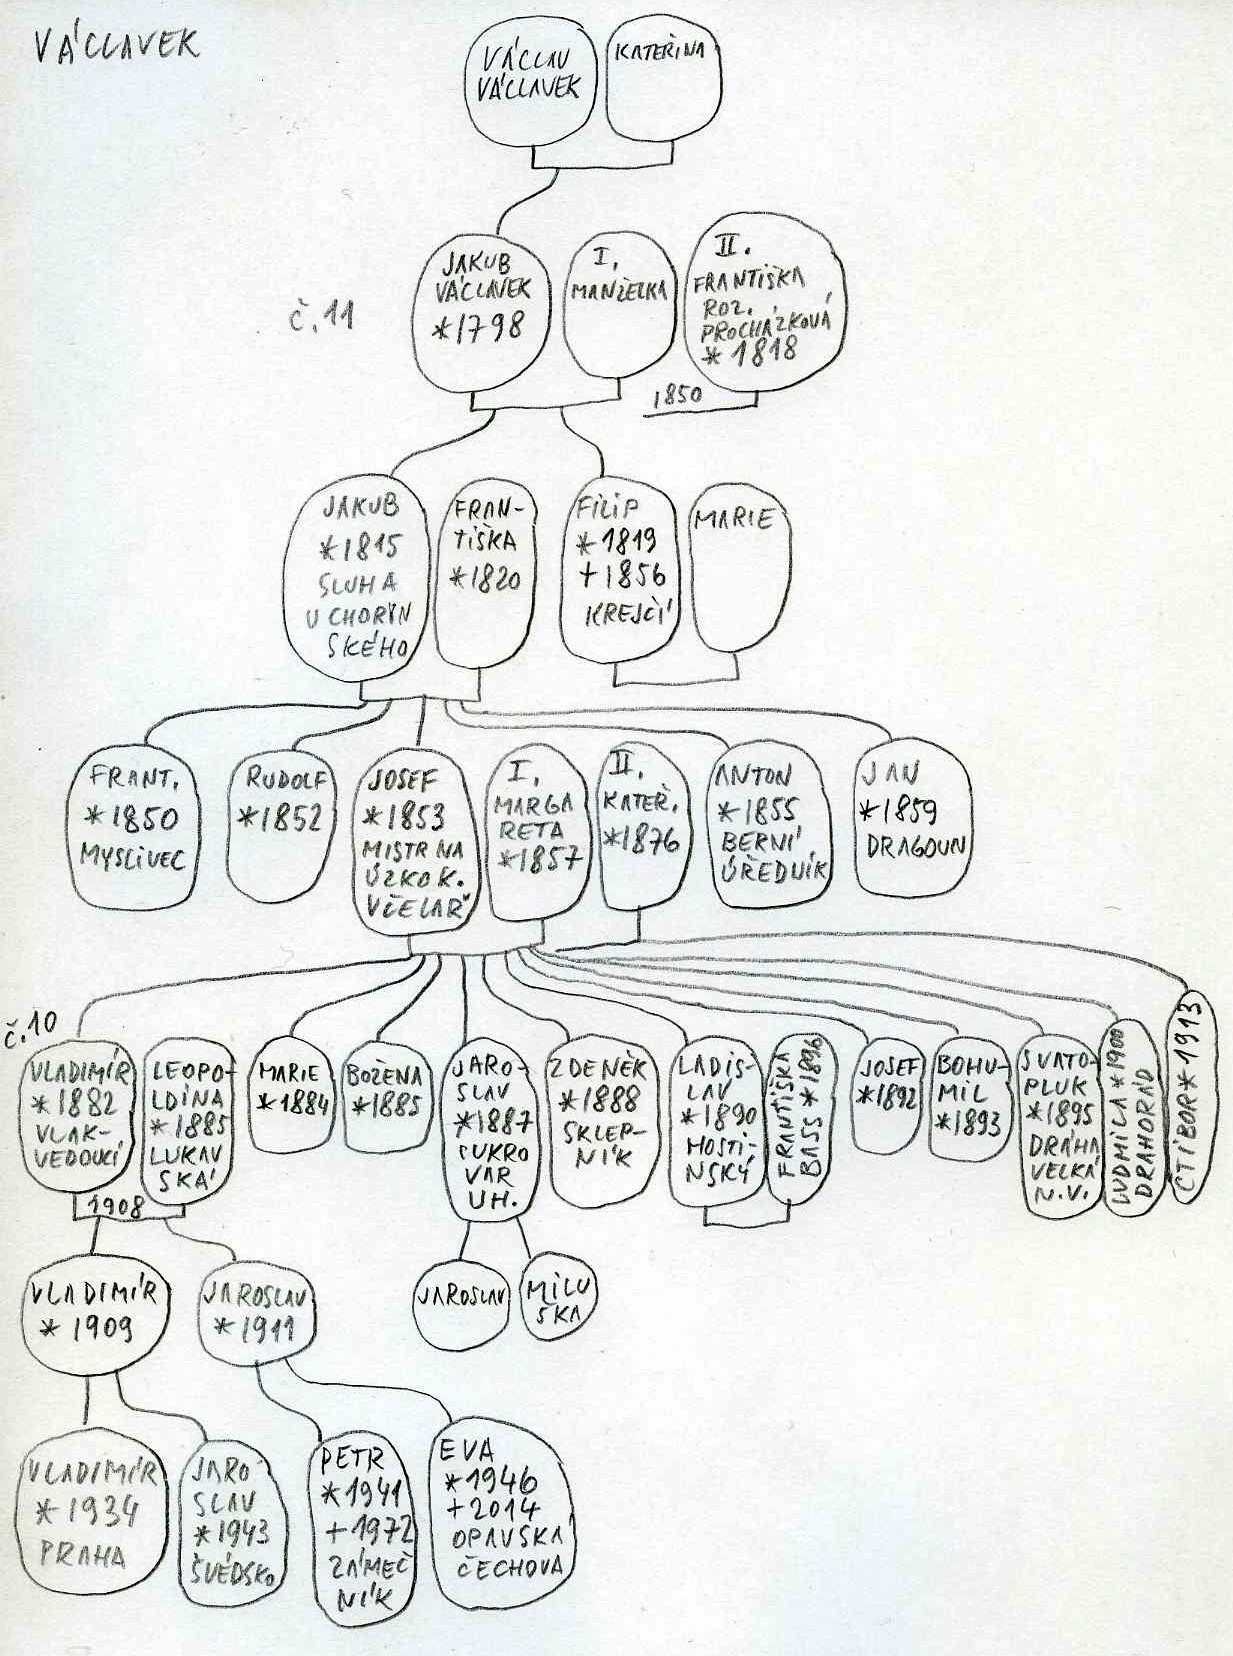 VÁCLAVEK
VÁCLAV
VÁCLAVEK
KATEŘINA
č.11
JAKUB
VÁCLAVEK
*1798
I.
MANŽELKA
II.
FRANTIŠKA
ROZ.
PROCHÁZKOVÁ
*1818
1850
JAKUB
*1815
SLUHA
U CHORYN
SKÉHO
FRAN-
TIŠKA
*1820
FILIP
*1819
+1856
KREJČÍ
MARIE
FRANT.
*1850
MYSLIVEC
RUDOLF
*1852
JOSEF
*1853
MISTR NA
ÚZKOK.
VČELAŘ
I.
MARGA
RETA
*1857
II.
KATEŘ.
*1876
ANTON
*1855
BERNÍ
ÚŘEDNÍK
JAN
*1859
DRAGOUN
č.10
VLADIMÍR
*1882
VLAK-
VEDOUCÍ
LEOPO-
LDINA
*1885
LUKAV
SKÁ
1908
MARIE
*1884
BOŽENA
*1885
JARO-
SLAV
*1887
CUKRO
VAR
UH.
ZDENĚK
*1888
SKLEP-
NÍK
LADIS-
LAV
*1890
HOSTI-
NSKÝ
FRANTIŠKA
BASS *1896
JOSEF
*1892
BOHU-
MIL
*1893
SVATO-
PLUK
*1895
DRÁHA
VELKÁ
N.V.
LUDMILA *1900
DRAHORÁD
CTIBOR *1913
VLADIMÍR
*1909
JAROSLAV
*1911
JAROSLAV
MILU
ŠKA
VLADIMÍR
*1934
PRAHA
JARO
SLAV
*1943
ŠVÉDSKO
PETR
*1941
+1972
ZÁMEČ
NÍK
EVA
*1946
+2014
OPAVSKÁ
ČECHOVA